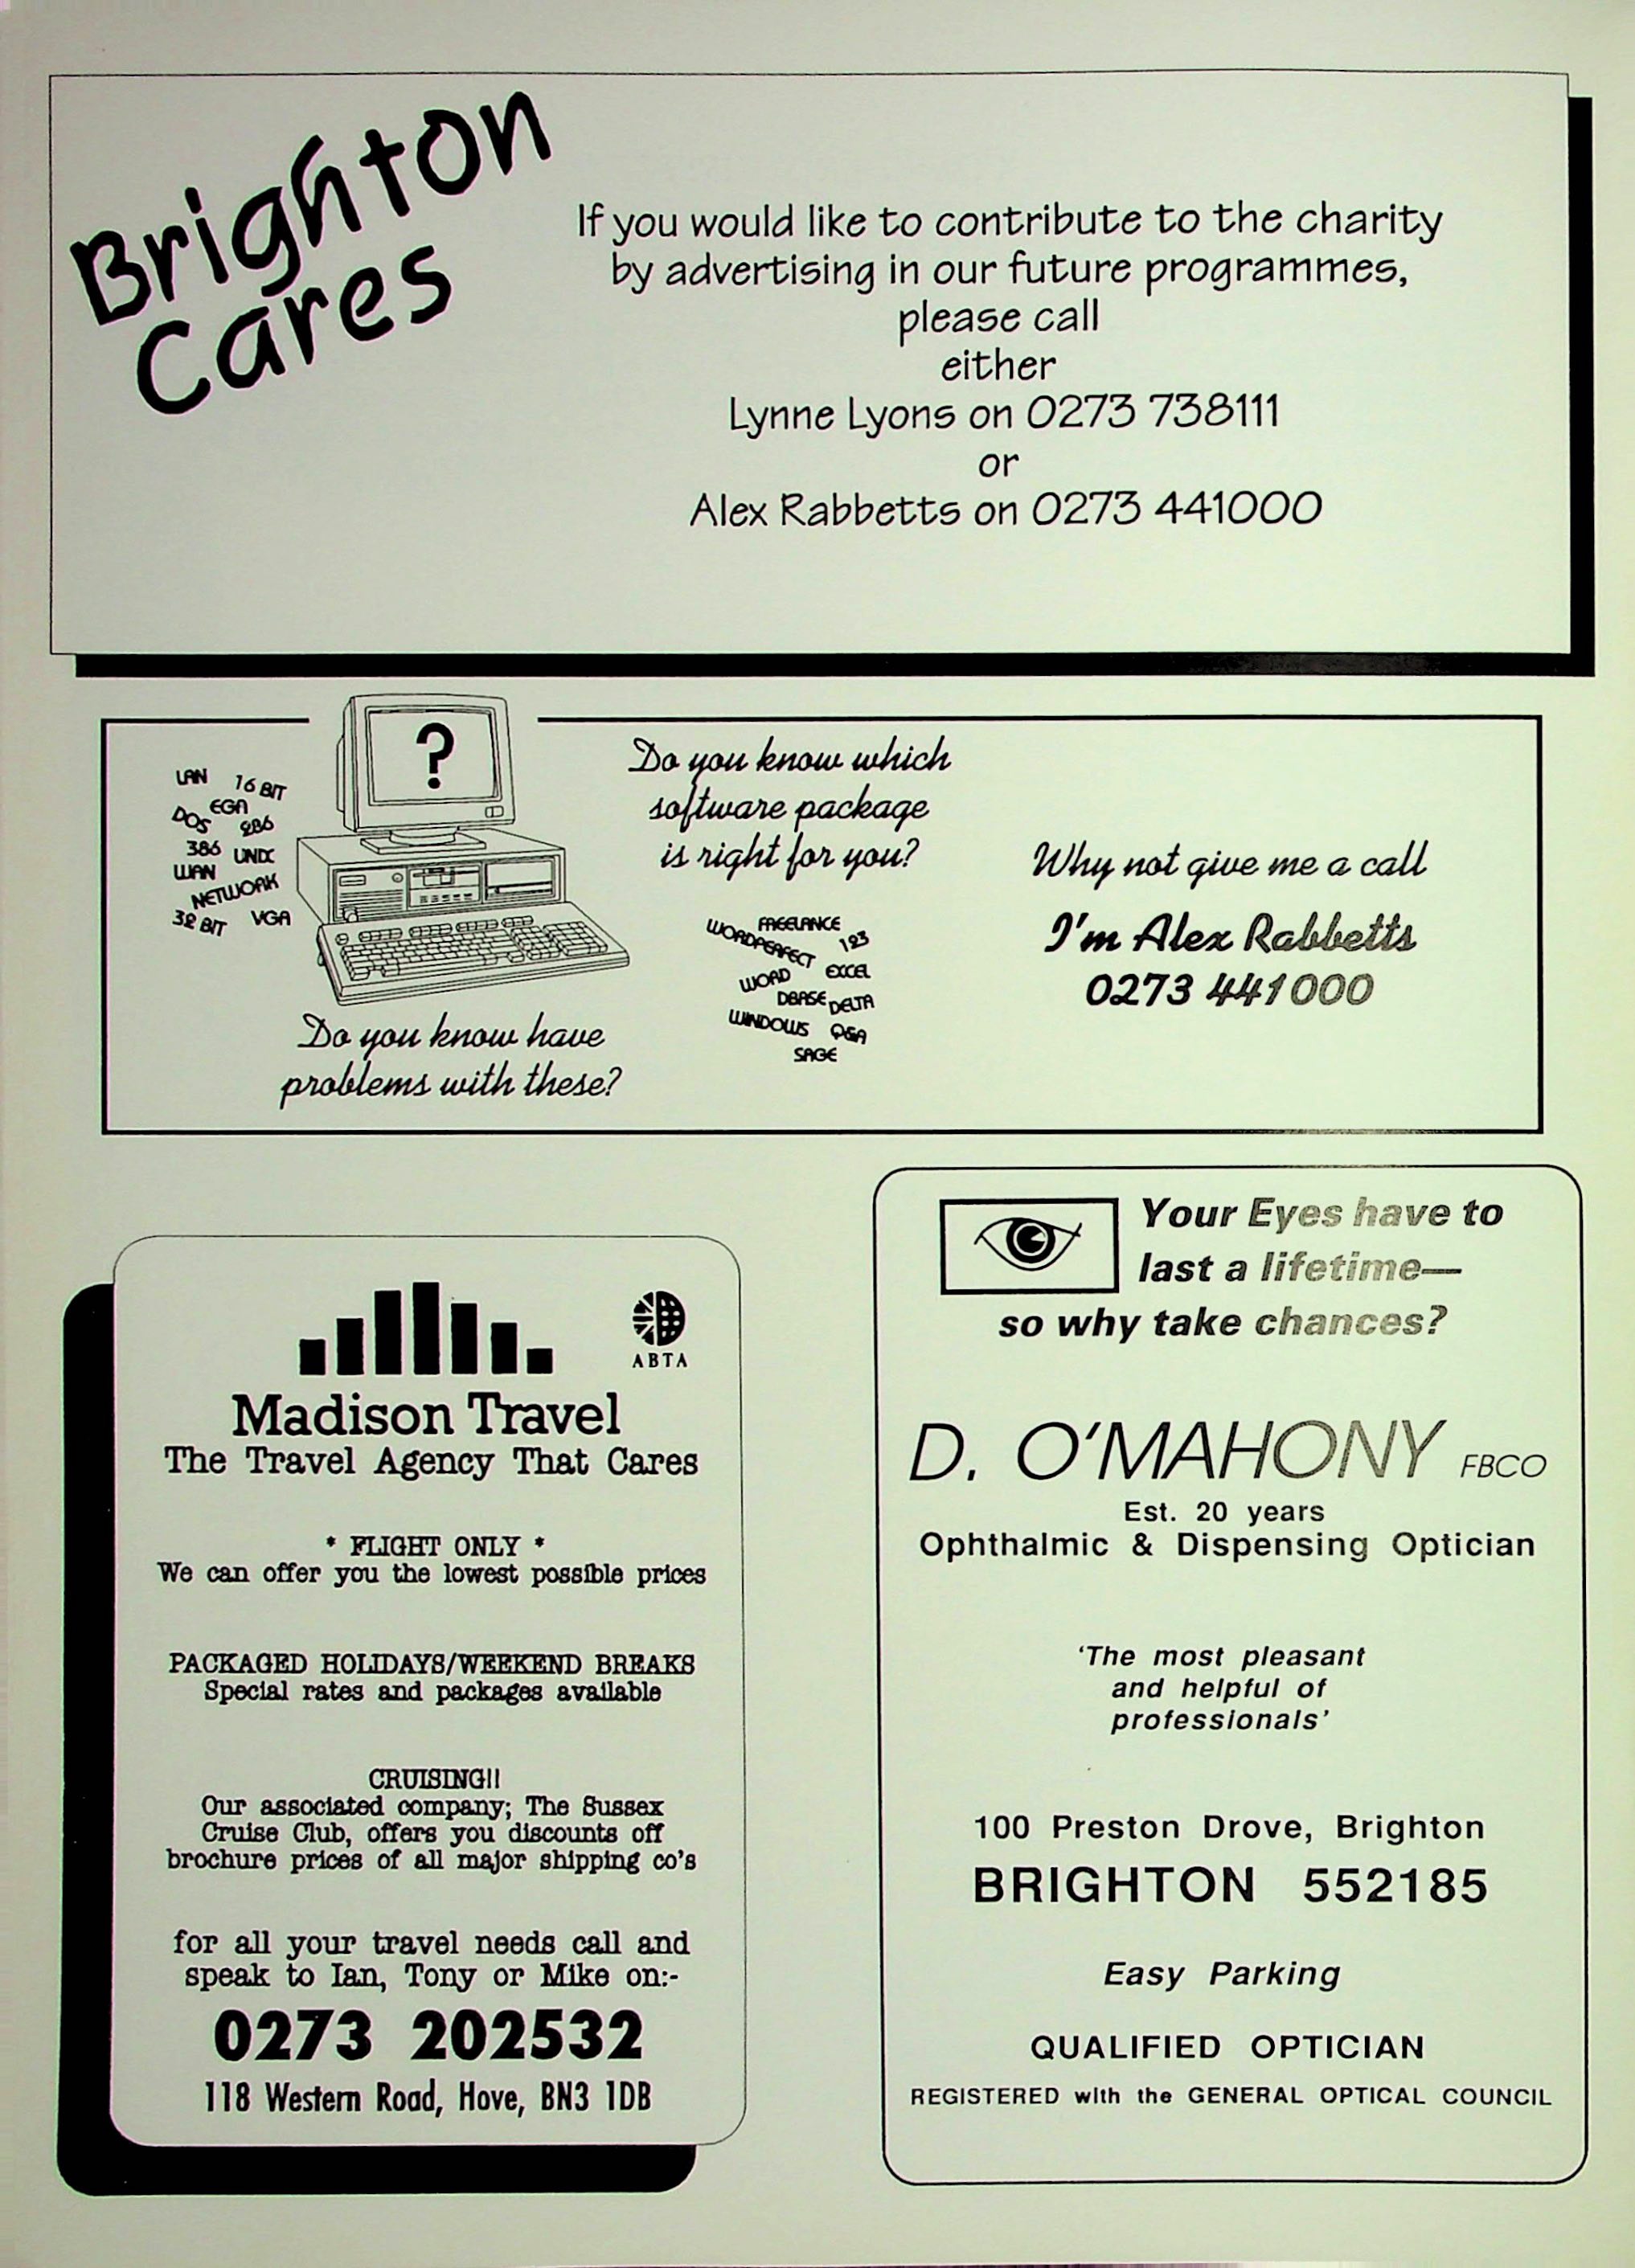 Brighton
Cares
If you would like to contribute to the charity
by advertising in our future programmes,
please call
either
Lynne Lyons on 0273 738111
or
Alex Rabbetts on 0273 441000
?
LAN 16 BIT
EGA
DOS 286
386 UNIX
WAN
NETWORK
32 BIT VGA
Do you know have
problems with these?
Do you know which
software package
is right for you?
FREELANCE
WORDPERFECT 123
WORD EXCEL
DBASE DELTA
WINDOWS Q&A
SAGE
Why not give me a call
I'm Alex Rabbetts
0273 441000
ABTA
Madison Travel
The Travel Agency That Cares
* FLIGHT ONLY *
We can offer you the lowest possible prices
PACKAGED HOLIDAYS/WEEKEND BREAKS
Special rates and packages available
CRUISING!!
Our associated company; The Sussex
Cruise Club, offers you discounts off
brochure prices of all major shipping co's
for all your travel needs call and
speak to Ian, Tony or Mike on:-
0273 202532
118 Western Road, Hove, BN3 1DB
Your Eyes have to
last a lifetime—
so why take chances?
D. O'MAHONY FBCO
Est. 20 years
Ophthalmic & Dispensing Optician
'The most pleasant
and helpful of
professionals'
100 Preston Drove, Brighton
BRIGHTON 552185
Easy Parking
QUALIFIED OPTICIAN
REGISTERED with the GENERAL OPTICAL COUNCIL